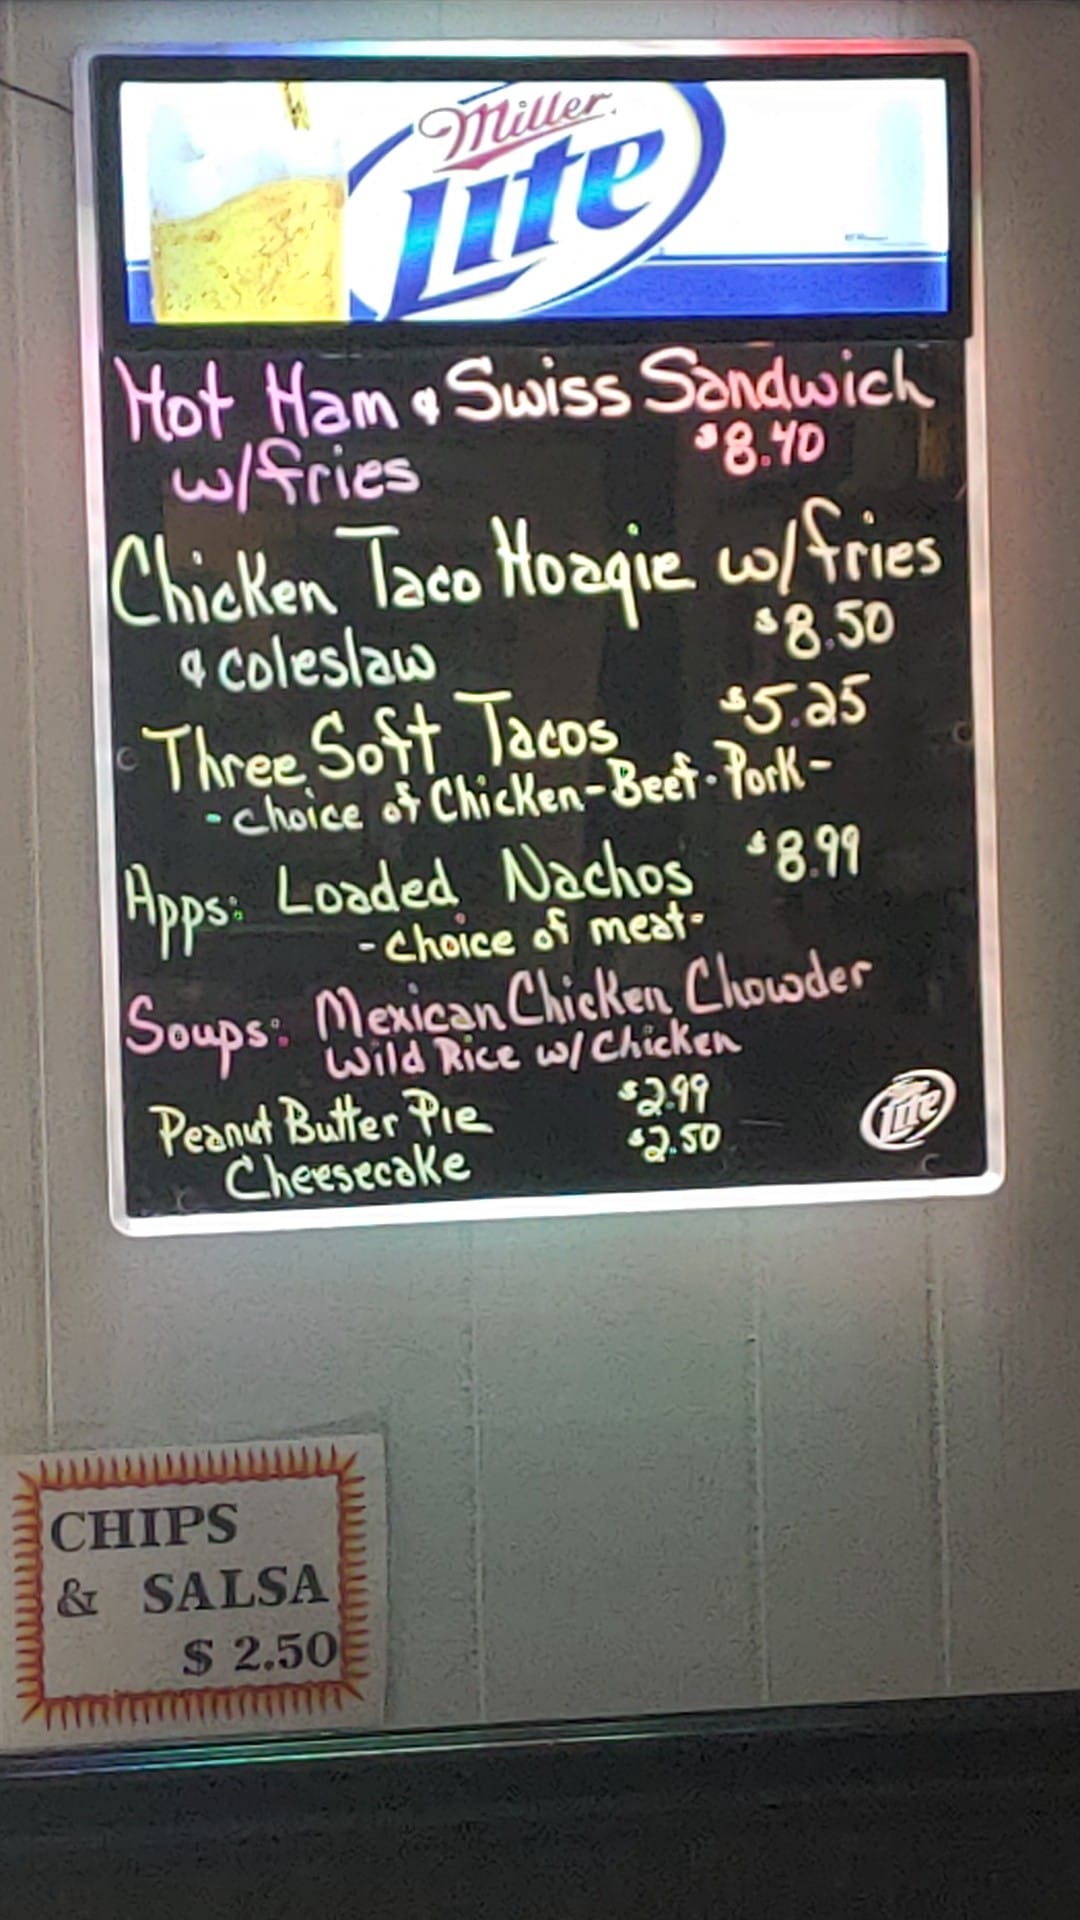 Miller
Lite
Hot Ham & Swiss Sandwich
w/fries $8.40
Chicken Taco Hoagie w/fries
& coleslaw $8.50
Three Soft Tacos $5.25
-choice of Chicken-Beef-Pork-
Apps: Loaded Nachos $8.99
-choice of meat-
Soups: Mexican Chicken Chowder
Wild Rice w/ Chicken
Peanut Butter Pie $2.99
Cheesecake $2.50
Lite
CHIPS
& SALSA
$ 2.50